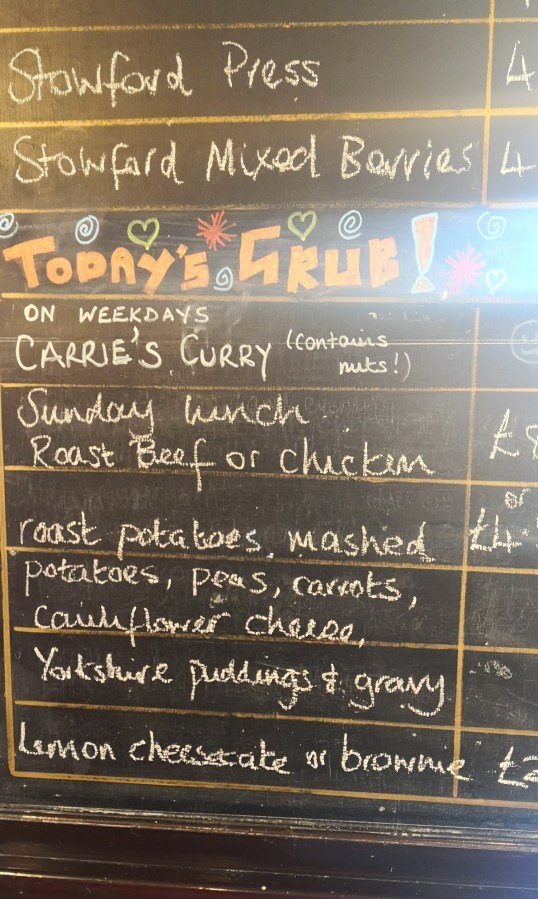 Stowford Press 4
Stowford Mixed Berries 4
TODAY'S GRUB!
ON WEEKDAYS
CARRIE'S CURRY (contains
nuts!)
Sunday lunch
Roast Beef or chicken £8
or
roast potatoes, mashed £4.
potatoes, peas, carrots,
cauliflower cheese,
Yorkshire puddings & gravy
Lemon cheesecake or brownie £2